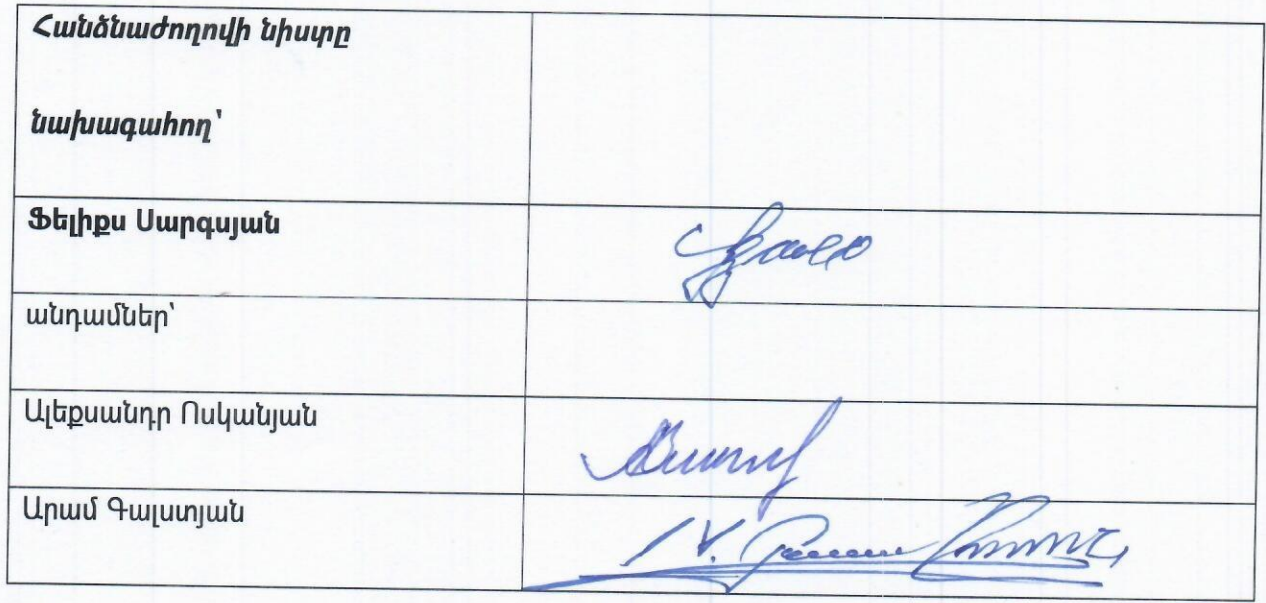 Հանձնաժողովի նիստը
նախագահող՝
Ֆելիքս Սարգսյան
անդամներ՝
Ալեքսանդր Ոսկանյան
Արամ Գալստյան